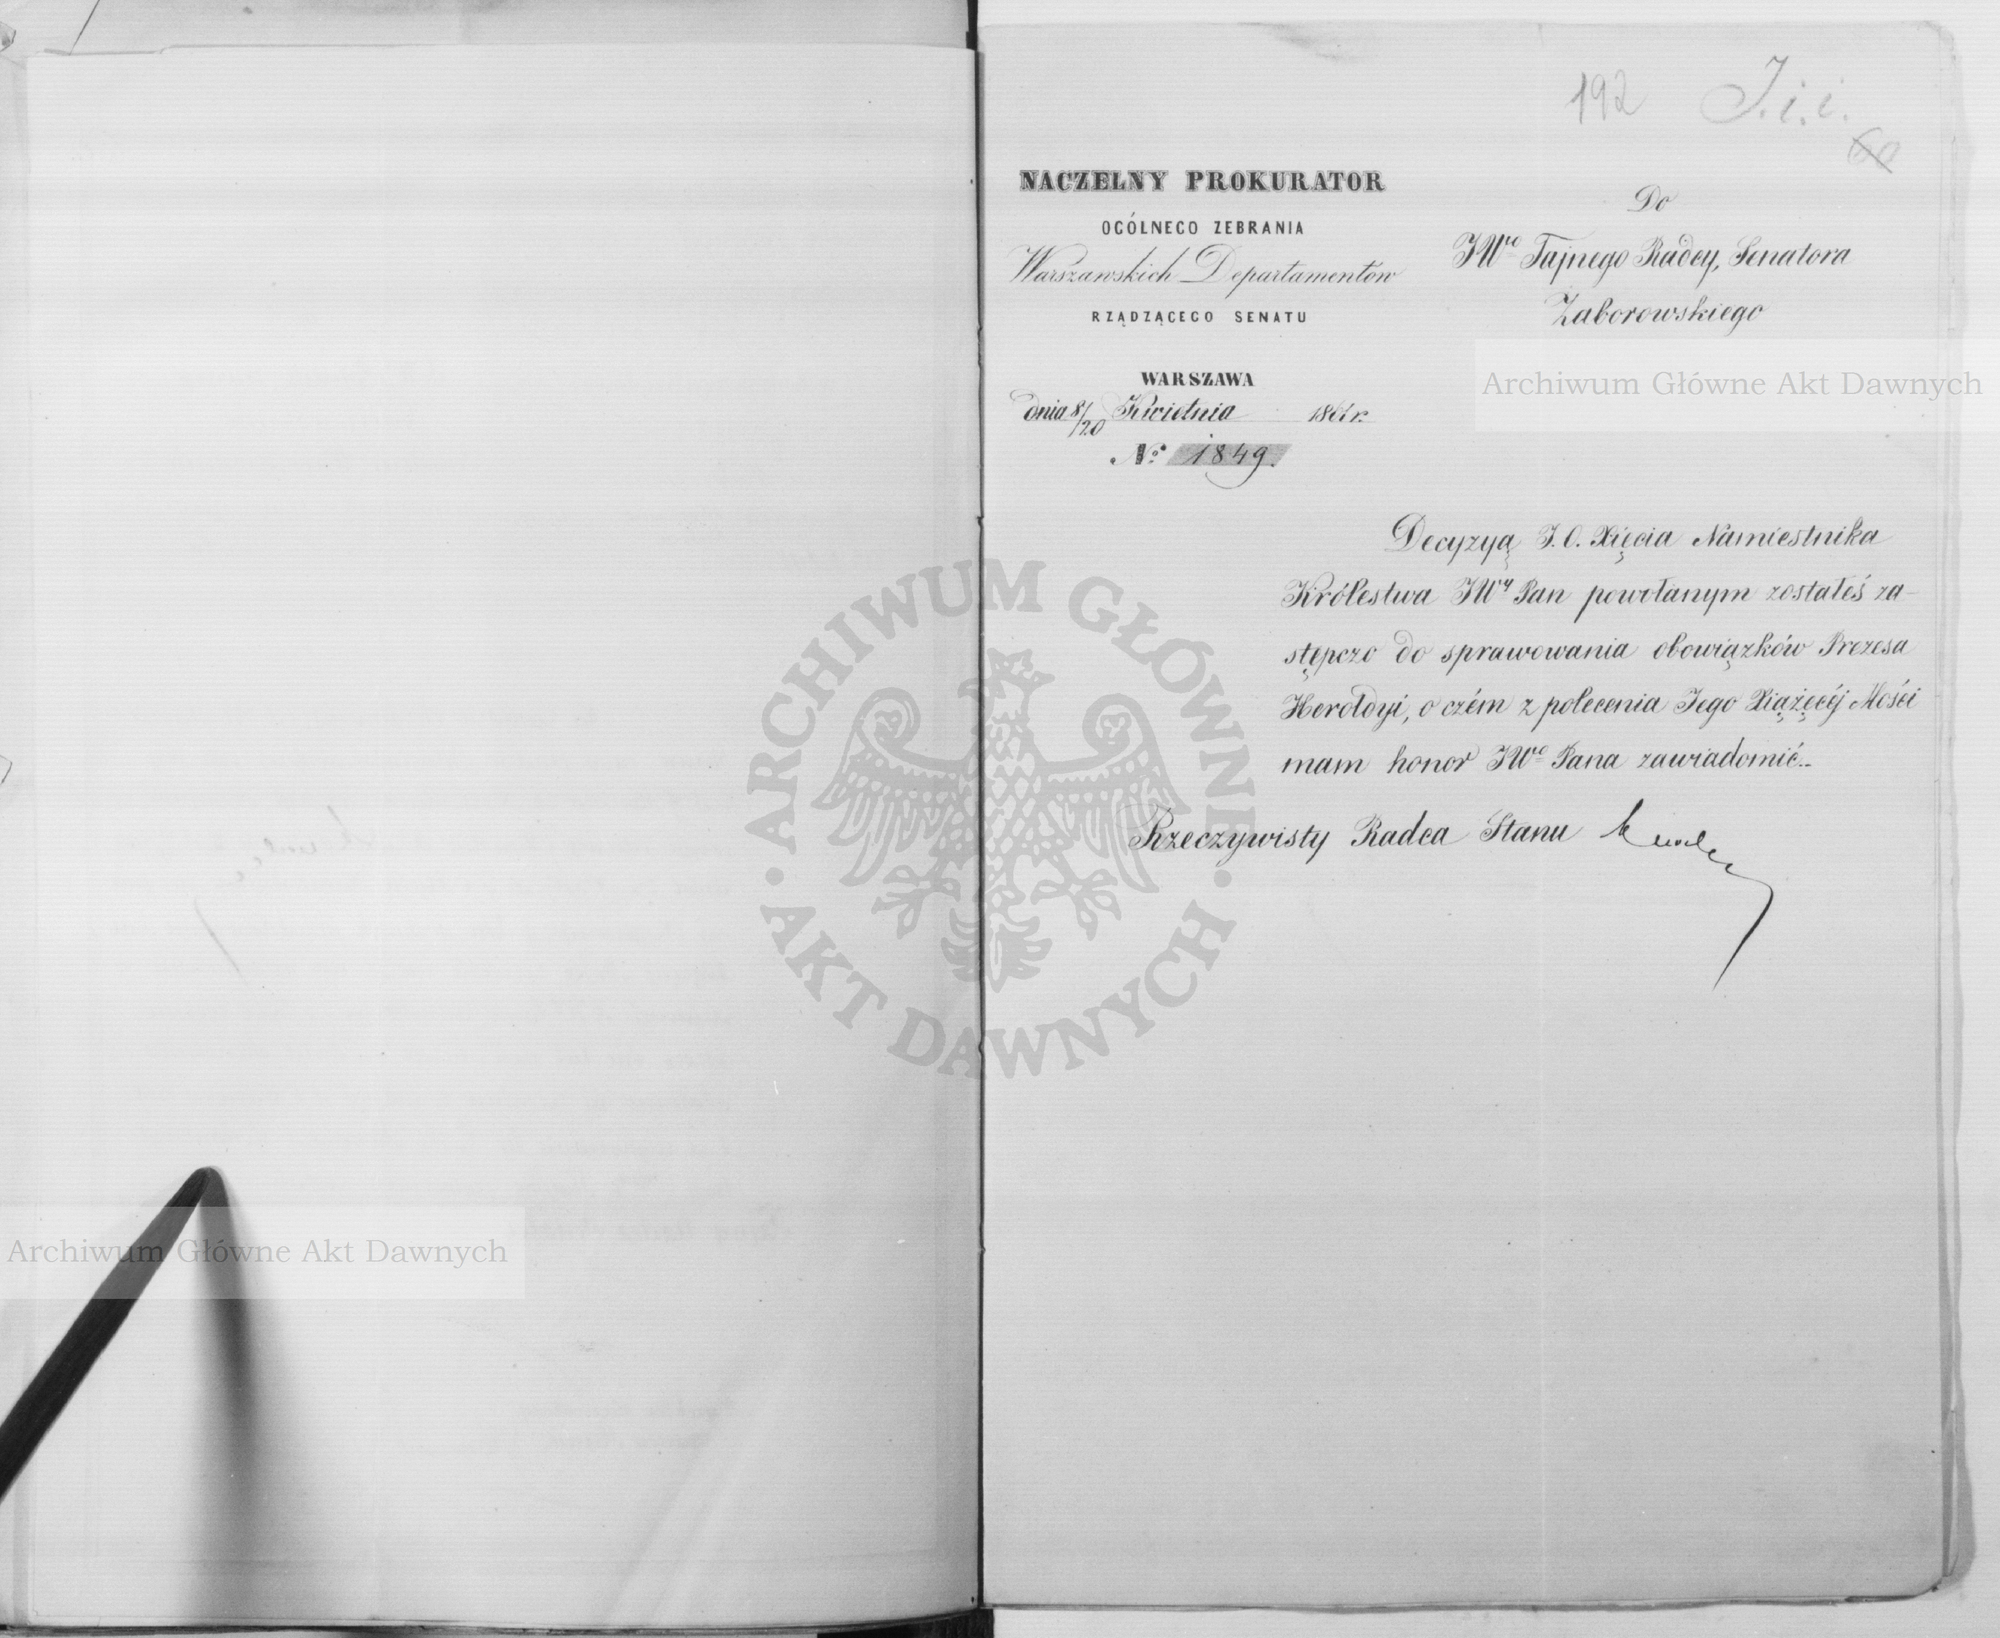 192 J. i. i.
60
NACZELNY PROKURATOR
OGÓLNEGO ZEBRANIA
Warszawskich Departamentów
RZĄDZĄCEGO SENATU
WARSZAWA
dnia 8/20 Kwietnia 1861 r.
No 1849.
Do
JWgo Tajnego Radcy, Senatora
Zaborowskiego
Decyzyą J. O. Xięcia Namiestnika
Królestwa JWy Pan powołanym zostałeś za-
stępczo do sprawowania obowiązków Prezesa
Heroldyi, o czém z polecenia Jego Xiążęcéj Mości
mam honor JWo Pana zawiadomić.
Rzeczywisty Radca Stanu
Archiwum Główne Akt Dawnych
ARCHIWUM GŁÓWNE · AKT DAWNYCH ·
Archiwum Główne Akt Dawnych